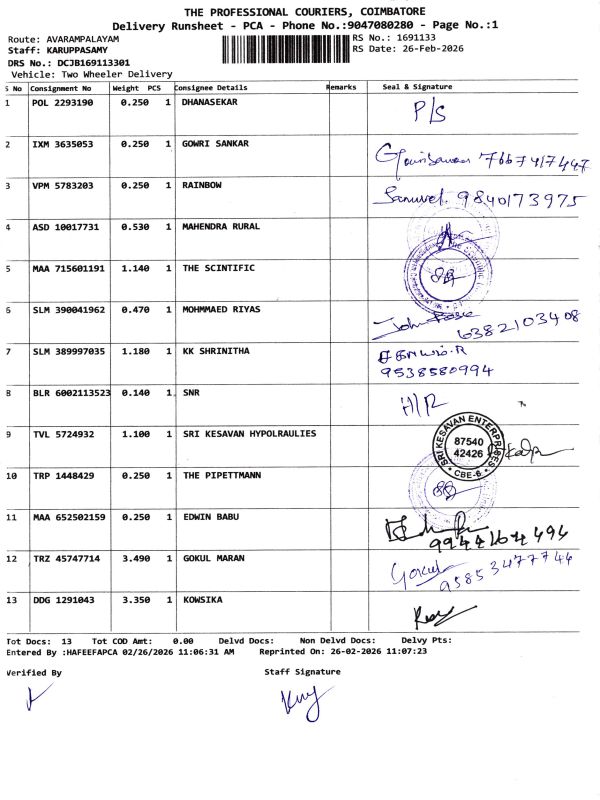 THE PROFESSIONAL COURIERS, COIMBATORE
Delivery Runsheet - PCA - Phone No.:9047080280 - Page No.:1
Route: AVARAMPALAYAM RS No.: 1691133
Staff: KARUPPASAMY RS Date: 26-Feb-2026
DRS No.: DCJB169113301
Vehicle: Two Wheeler Delivery
S No Consignment No Weight PCS Consignee Details Remarks Seal & Signature
1 POL 2293190 0.250 1 DHANASEKAR P/S
2 IXM 3635053 0.250 1 GOWRI SANKAR 7667417447
3 VPM 5783203 0.250 1 RAINBOW Samuvel. 9840173975
4 ASD 10017731 0.530 1 MAHENDRA RURAL
5 MAA 715601191 1.140 1 THE SCINTIFIC
6 SLM 390041962 0.470 1 MOHMMAED RIYAS John 6382103408
7 SLM 389997035 1.180 1 KK SHRINITHA
9538580994
8 BLR 6002113523 0.140 1 SNR H/R
9 TVL 5724932 1.100 1 SRI KESAVAN HYPOLRAULIES SRI KESAVAN ENTERPRISES 87540 42426 CBE-6
10 TRP 1448429 0.250 1 THE PIPETTMANN
11 MAA 652502159 0.250 1 EDWIN BABU
12 TRZ 45747714 3.490 1 GOKUL MARAN Gokul 95853477744
13 DDG 1291043 3.350 1 KOWSIKA
Tot Docs: 13 Tot COD Amt: 0.00 Delvd Docs: Non Delvd Docs: Delvy Pts:
Entered By :HAFEEFAPCA 02/26/2026 11:06:31 AM Reprinted On: 26-02-2026 11:07:23
Verified By Staff Signature